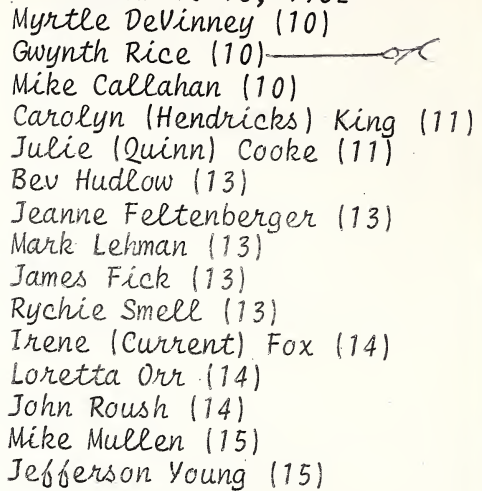 Myrtle DeVinney (10)
Gwynth Rice (10)
Mike Callahan (10)
Carolyn (Hendricks) King (11)
Julie (Quinn) Cooke (11)
Bev Hudlow (13)
Jeanne Feltenberger (13)
Mark Lehman (13)
James Fick (13)
Rychie Smell (13)
Irene (Current) Fox (14)
Loretta Orr (14)
John Roush (14)
Mike Mullen (15)
Jefferson Young (15)